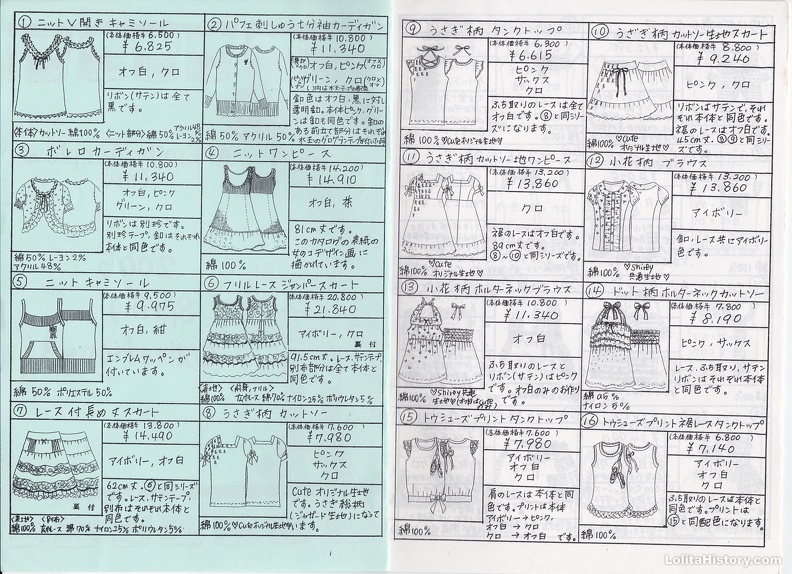 ① ニットV開きキャミソール
(本体価格¥ 6,500)
¥ 6,825
オフ白, クロ
リボン(サテン)は全て
黒です。
(本体)カットソー 綿100% (ニット部分)綿50% アクリル48% レーヨン2%
② パフェ刺しゅう七分袖カーディガン
(本体価格¥ 10,800)
¥ 11,340
オフ白, ピンク
グリーン, クロ
釦色はオフ白, 黒に対し
透明釦。本体ピンク, グリー
ンは釦も同色です。釦の
ある前立て部分はそれぞれ
綿 50% アクリル 50%
③ ボレロカーディガン
(本体価格¥ 10,800)
¥ 11,340
オフ白, ピンク
グリーン, クロ
リボンは別珍です。
別珍テープ, 釦はそれぞれ
本体と同色です。
綿 50% レーヨン 2%
アクリル 48%
④ ニットワンピース
(本体価格¥ 14,200)
¥ 14,910
オフ白, 茶
81cm丈です。
このカタログの表紙の
女のコデザイン画に
描かれています。
綿 100%
⑤ ニットキャミソール
(本体価格¥ 9,500)
¥ 9,975
オフ白, 紺
エンブレムワッペンが
付いています。
綿 50% ポリエステル 50%
⑥ フリルレースジャンパースカート
(本体価格¥ 20,800)
¥ 21,840
アイボリー, クロ
裏 付
91.5cm丈。レース, サテンテープ,
別布部分は全て本体と
同色です。
綿100% ナイロン25% ポリウレタン5%
⑦ レース付長め丈スカート
(本体価格¥ 13,800)
¥ 14,490
アイボリー, オフ白
裏 付
62cm丈。⑥と同シリーズ
です。レース, サテンテープ,
別布はそれぞれ本体と
同色です。
(表地) (別布)
綿100% 綿 70% ナイロン25% ポリウレタン5%
⑧ うさぎ柄 カットソー
(本体価格¥ 7,600)
¥ 7,980
ピンク
サックス
クロ
Cute オリジナル生地
です。うさぎ総柄
(ジャガード生地)になって
います。
綿 100% ♡Cuteオリジナル生地
⑨ うさぎ柄 タンクトップ
(本体価格¥ 6,300)
¥ 6,615
ピンク
サックス
クロ
ふち取りのレースは全て
オフ白です。⑧と同シリー
ズになります。
綿 100% ♡Cuteオリジナル生地♡
⑩ うさぎ柄カットソー生地スカート
(本体価格¥ 8,800)
¥ 9,240
ピンク, クロ
リボンはサテンで, それ
ぞれ本体と同色です。
裾のレースはオフ白です。
⑧⑨と同シリー
ズです。
綿100% ♡Cute
オリジナル生地♡
⑪ うさぎ柄カットソー生地ワンピース
(本体価格¥ 13,200)
¥ 13,860
クロ
裾のレースはオフ白です。
89cm丈です。
⑧〜⑩と同シリーズです。
綿 100% ♡Cute
オリジナル生地♡
⑫ 小花柄 ブラウス
(本体価格¥ 13,200)
¥ 13,860
アイボリー
釦, レース共にアイボリー
色です。
綿 100% ♡Shirley
共通生地♡
⑬ 小花柄ホルターネックブラウス
(本体価格¥ 10,800)
¥ 11,340
オフ白
ふち取りのレースと
リボン(サテン)はピンク
です。オフ白のみのお作り
です。
綿100%
⑭ ドット柄ホルターネックカットソー
(本体価格¥ 7,800)
¥ 8,190
ピンク, サックス
レース, ふち取り, サテン
リボンはそれぞれ本体
と同色です。
綿 95%
ナイロン 5%
⑮ トゥシューズプリントタンクトップ
(本体価格¥ 7,600)
¥ 7,980
アイボリー
オフ白
クロ
肩のレースは本体と同
色です。プリントは本体
アイボリー→ピンク,
オフ白 → クロ
クロ → オフ白 です。
綿100%
⑯ トゥシューズプリント裾レースタンクトップ
(本体価格¥ 6,800)
¥ 7,140
アイボリー
オフ白
クロ
ふち取りのレースは本体と
同色です。プリントは
⑮と同配色になります。
綿 100%
LolitaHistory.com